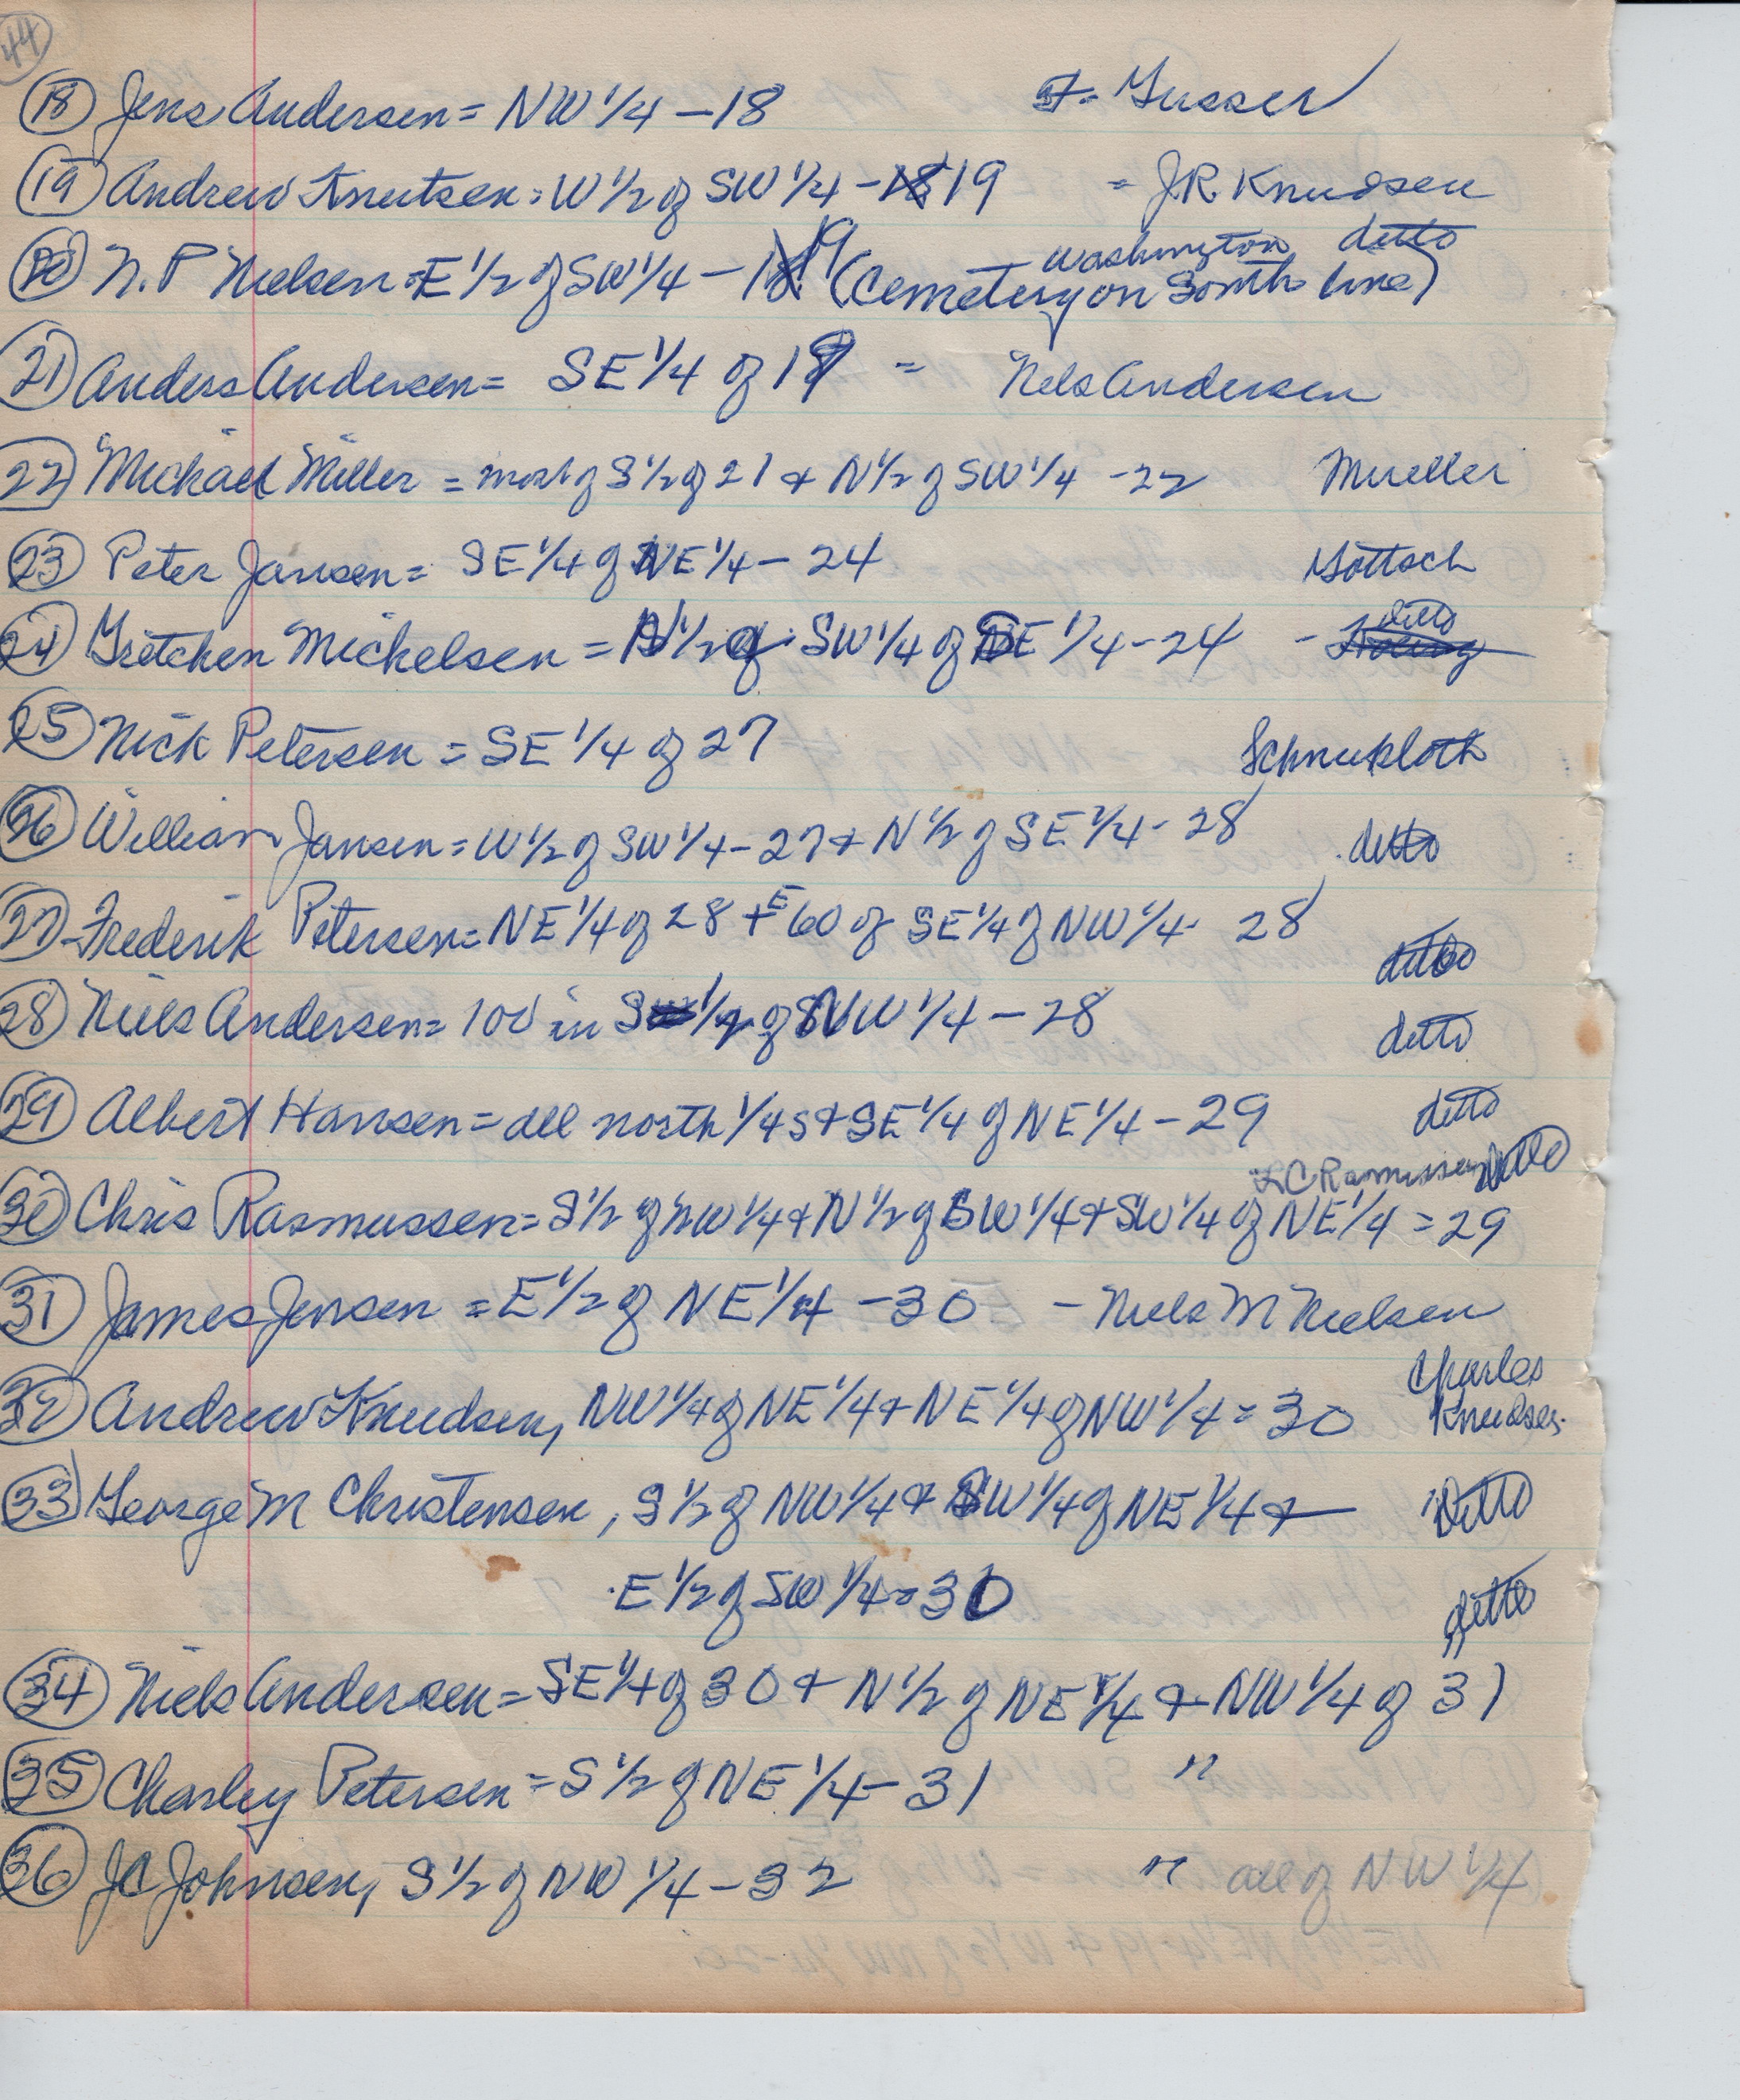 44
18 Jens Andersen = NW 1/4 - 18 Gusser
19 Andrew Knutsen = W 1/2 of SW 1/4 - 18 19 = J.R. Knudsen
20 N. P Nielsen = E 1/2 of SW 1/4 - 18 19 (Washington Cemetery on South line) ditto
21 Anders Andersen = SE 1/4 of 19 = Nels Andersen
22 Michael Miller = most of S 1/2 of 21 + N 1/2 of SW 1/4 - 22 Mueller
23 Peter Jansen = SE 1/4 of NE 1/4 - 24 Gottsch
24 Gretchen Mickelsen = 1/2 of SW 1/4 of SE 1/4 - 24 - ditto
25 Nick Petersen = SE 1/4 of 27 Schnuckloth
26 William Jansen = W 1/2 of SW 1/4 - 27 + N 1/2 of SE 1/4 - 28 ditto
27 Frederik Petersen = NE 1/4 of 28 + E 60 of SE 1/4 of NW 1/4 - 28 ditto
28 Niels Andersen = 100 in S 1/2 of NW 1/4 - 28 ditto
29 Albert Hansen = all north 1/4s + SE 1/4 of NE 1/4 - 29 ditto
LC Rasmussen ditto
30 Chris Rasmussen = S 1/2 of NW 1/4 + N 1/2 of SW 1/4 + SW 1/4 of NE 1/4 = 29
31 James Jensen = E 1/2 of NE 1/4 - 30 - Niels M Nielsen
32 Andrew Knudsen, NW 1/4 of NE 1/4 + NE 1/4 of NW 1/4 = 30 Charles Knudsen
33 George M Christensen, S 1/2 of NW 1/4 + SW 1/4 of NE 1/4 + Ditto
E 1/2 of SW 1/4 = 30 ditto
34 Niels Andersen = SE 1/4 of 30 + N 1/2 of NE 1/4 + NW 1/4 of 31
35 Charley Petersen = S 1/2 of NE 1/4 - 31 "
36 JC Johnsen, S 1/2 of NW 1/4 - 32 " all of NW 1/4